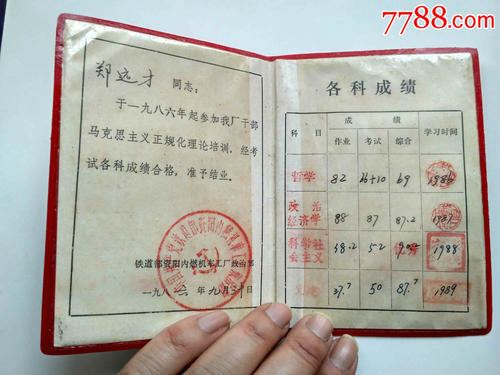 7788.com
郑远才 同志：
于一九八六年起参加我厂干部
马克思主义正规化理论培训，经考
试各科成绩合格，准予结业。
铁道部资阳内燃机车工厂政治部
各科成绩
科 目 成 绩 学习时间
作业 考试 综合
哲学 82 69 1986
政治经济学 88 87 87.2 1987
科学社会主义 52 1988
37.7 50 87.7 1989